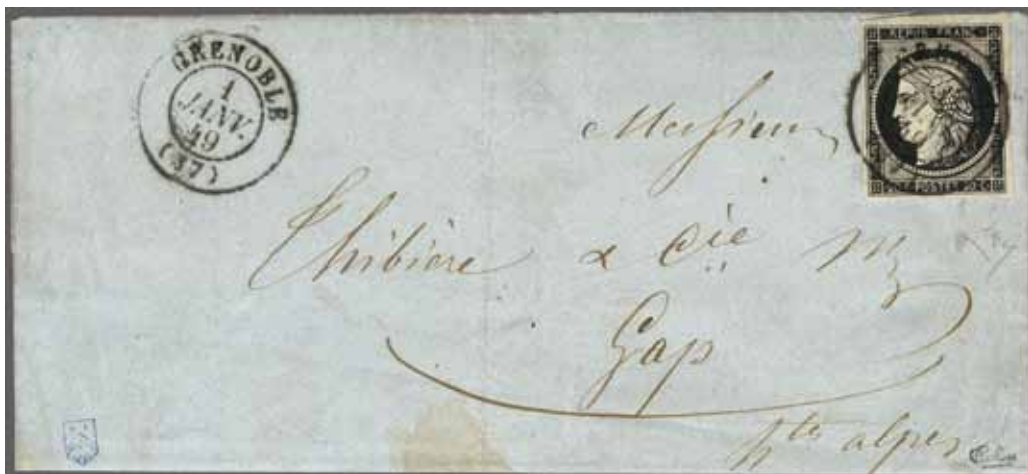 GRENOBLE
1
JANV.
49
(37)
REPUB. FRANC.
20 C. POSTES 20 C.
Monsieur
Thibière & Cie
Gap
htes alpes